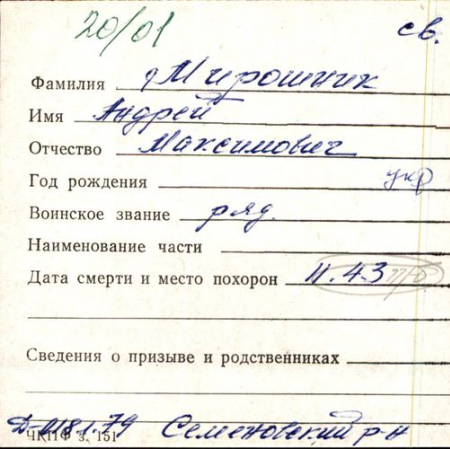 20/01 св.
Фамилия Мирошник
Имя Андрей
Отчество Максимович
Год рождения укр
Воинское звание ряд.
Наименование части
Дата смерти и место похорон 11.43 п/б
Сведения о призыве и родственниках
Семеновский р-н
ЧКПФ з. 151